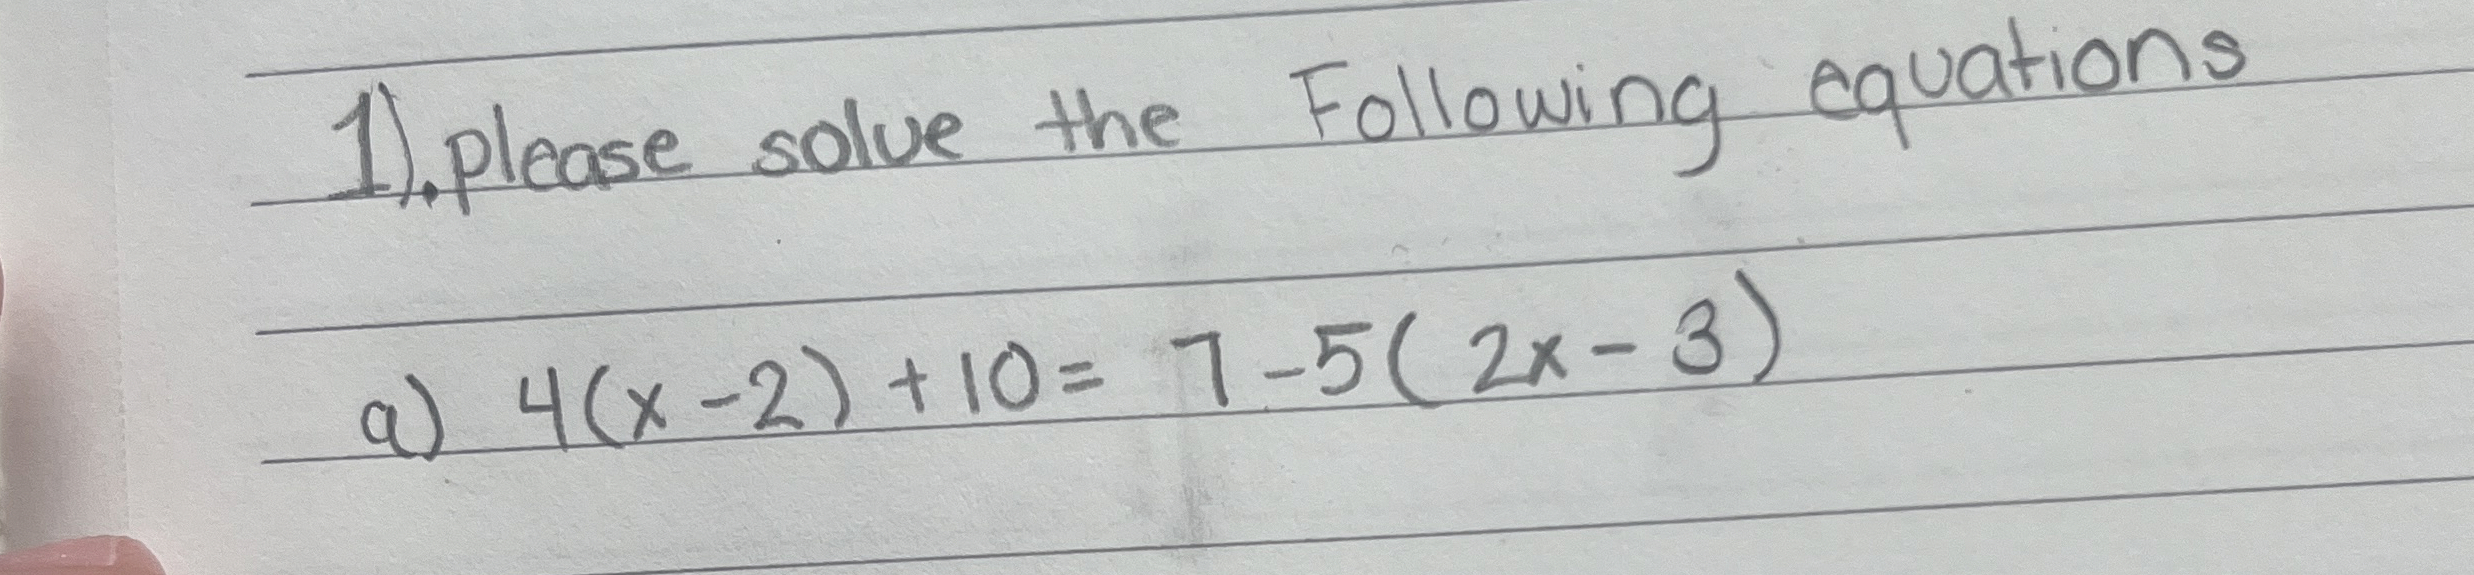 1). please solve the Following equations
a) 4(x-2) +10= 7-5( 2x- 3)